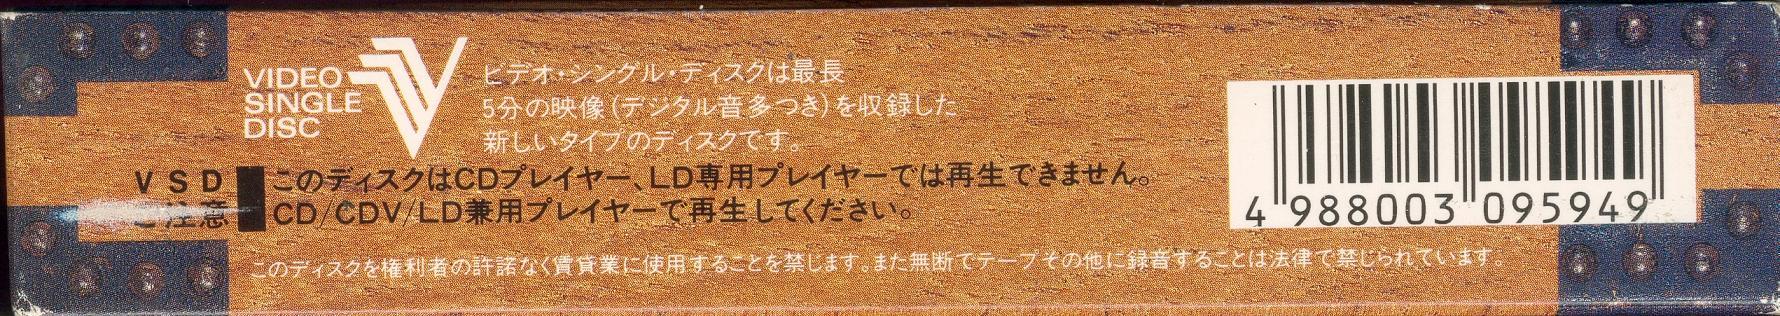 VIDEO
SINGLE
DISC
ビデオ・シングル・ディスクは最長
5分の映像(デジタル音多つき)を収録した
新しいタイプのディスクです。
VSD このディスクはCDプレイヤー、LD専用プレイヤーでは再生できません。
ご注意 CD/CDV/LD兼用プレイヤーで再生してください。
このディスクを権利者の許諾なく賃貸業に使用することを禁じます。また無断でテープその他に録音することは法律で禁じられています。
4 988003 095949